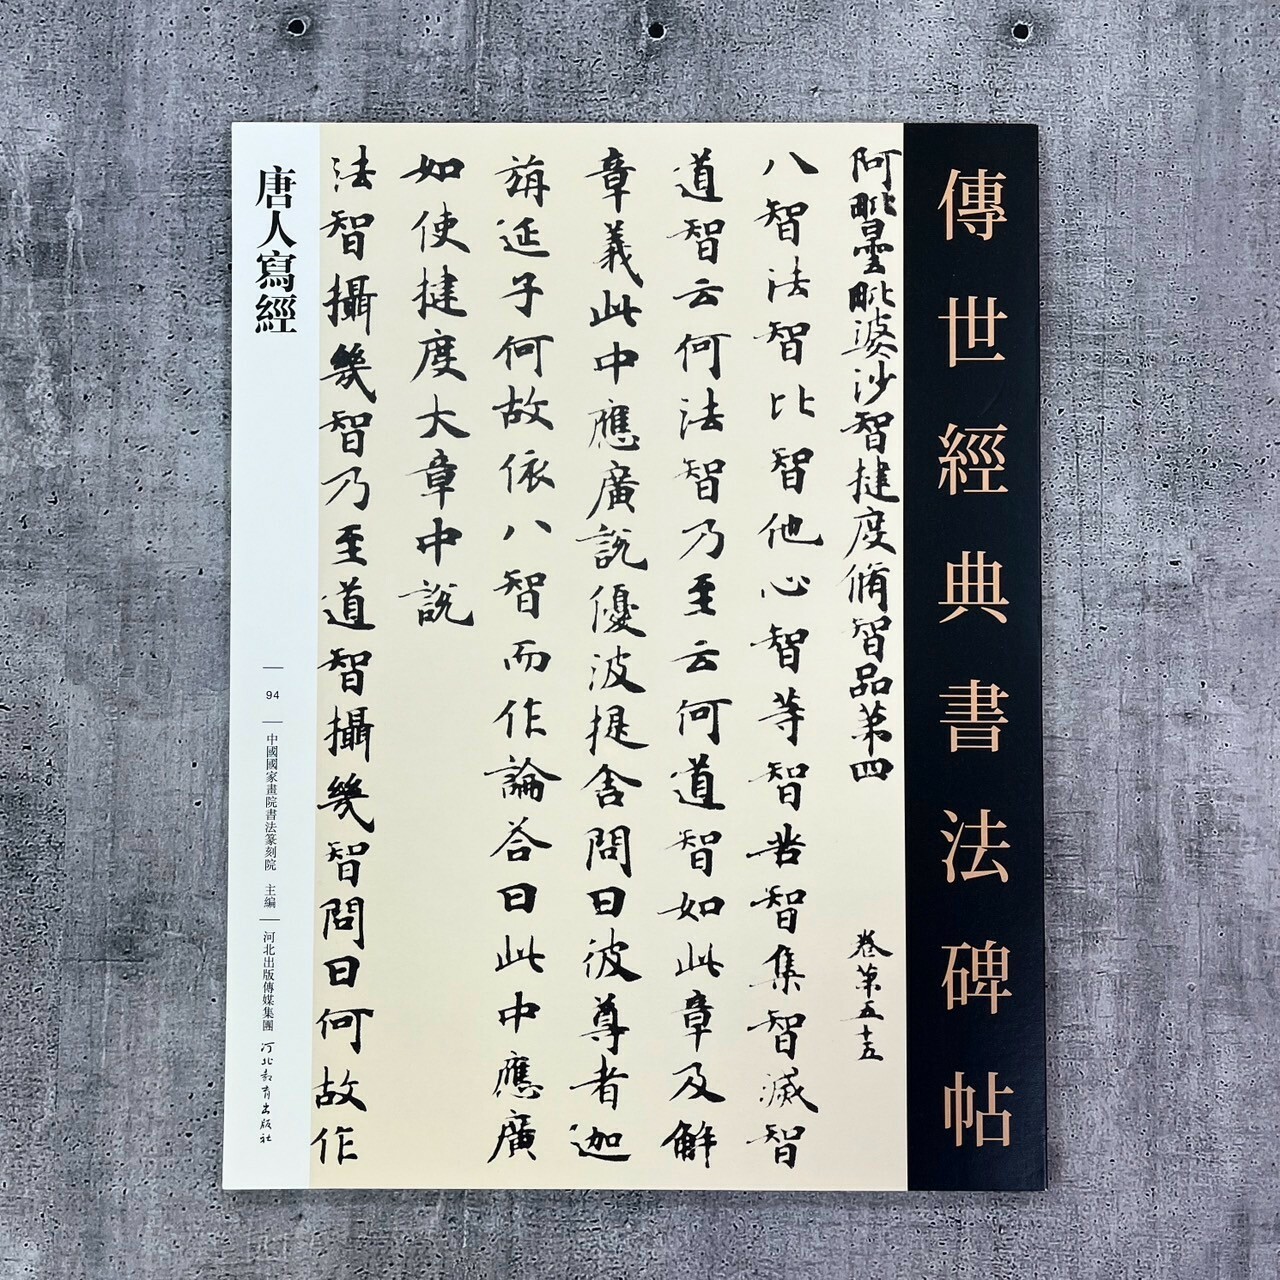 傳世經典書法碑帖
阿毗曇毗婆沙智揵度脩智品第四
卷第五十五
八智法智比智他心智等智苦智集智滅智
道智云何法智乃至云何道智如此章及解
章義此中應廣說優波提舍問曰彼尊者迦
旃延子何故依八智而作論答曰此中應廣
如使揵度大章中說
法智攝幾智乃至道智攝幾智問曰何故作
唐人寫經
94
中國國家畫院書法篆刻院 主編
河北出版傳媒集團
河北教育出版社